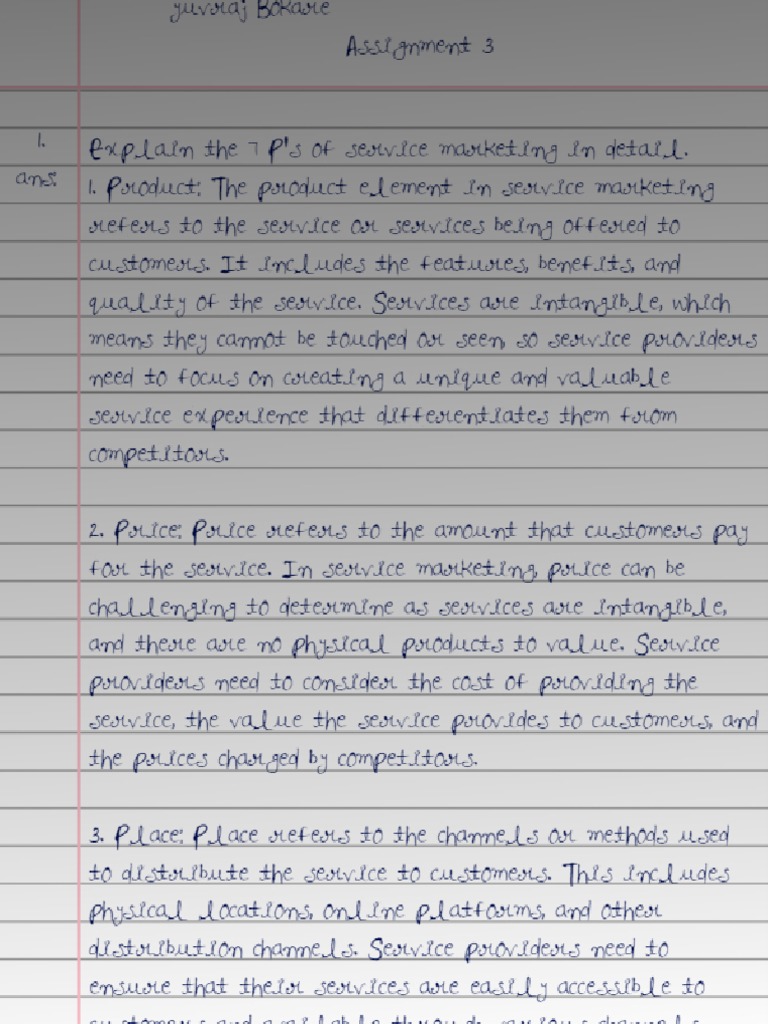 yuvraj Bokare
Assignment 3
1. Explain the 7 P's of service marketing in detail.
ans: 1. Product: The product element in service marketing
refers to the service or services being offered to
customers. It includes the features, benefits, and
quality of the service. Services are intangible, which
means they cannot be touched or seen, so service providers
need to focus on creating a unique and valuable
service experience that differentiates them from
competitors.
2. Price: Price refers to the amount that customers pay
for the service. In service marketing, price can be
challenging to determine as services are intangible,
and there are no physical products to value. Service
providers need to consider the cost of providing the
service, the value the service provides to customers, and
the prices charged by competitors.
3. Place: Place refers to the channels or methods used
to distribute the service to customers. This includes
physical locations, online platforms, and other
distribution channels. Service providers need to
ensure that their services are easily accessible to
customers and available through various channels